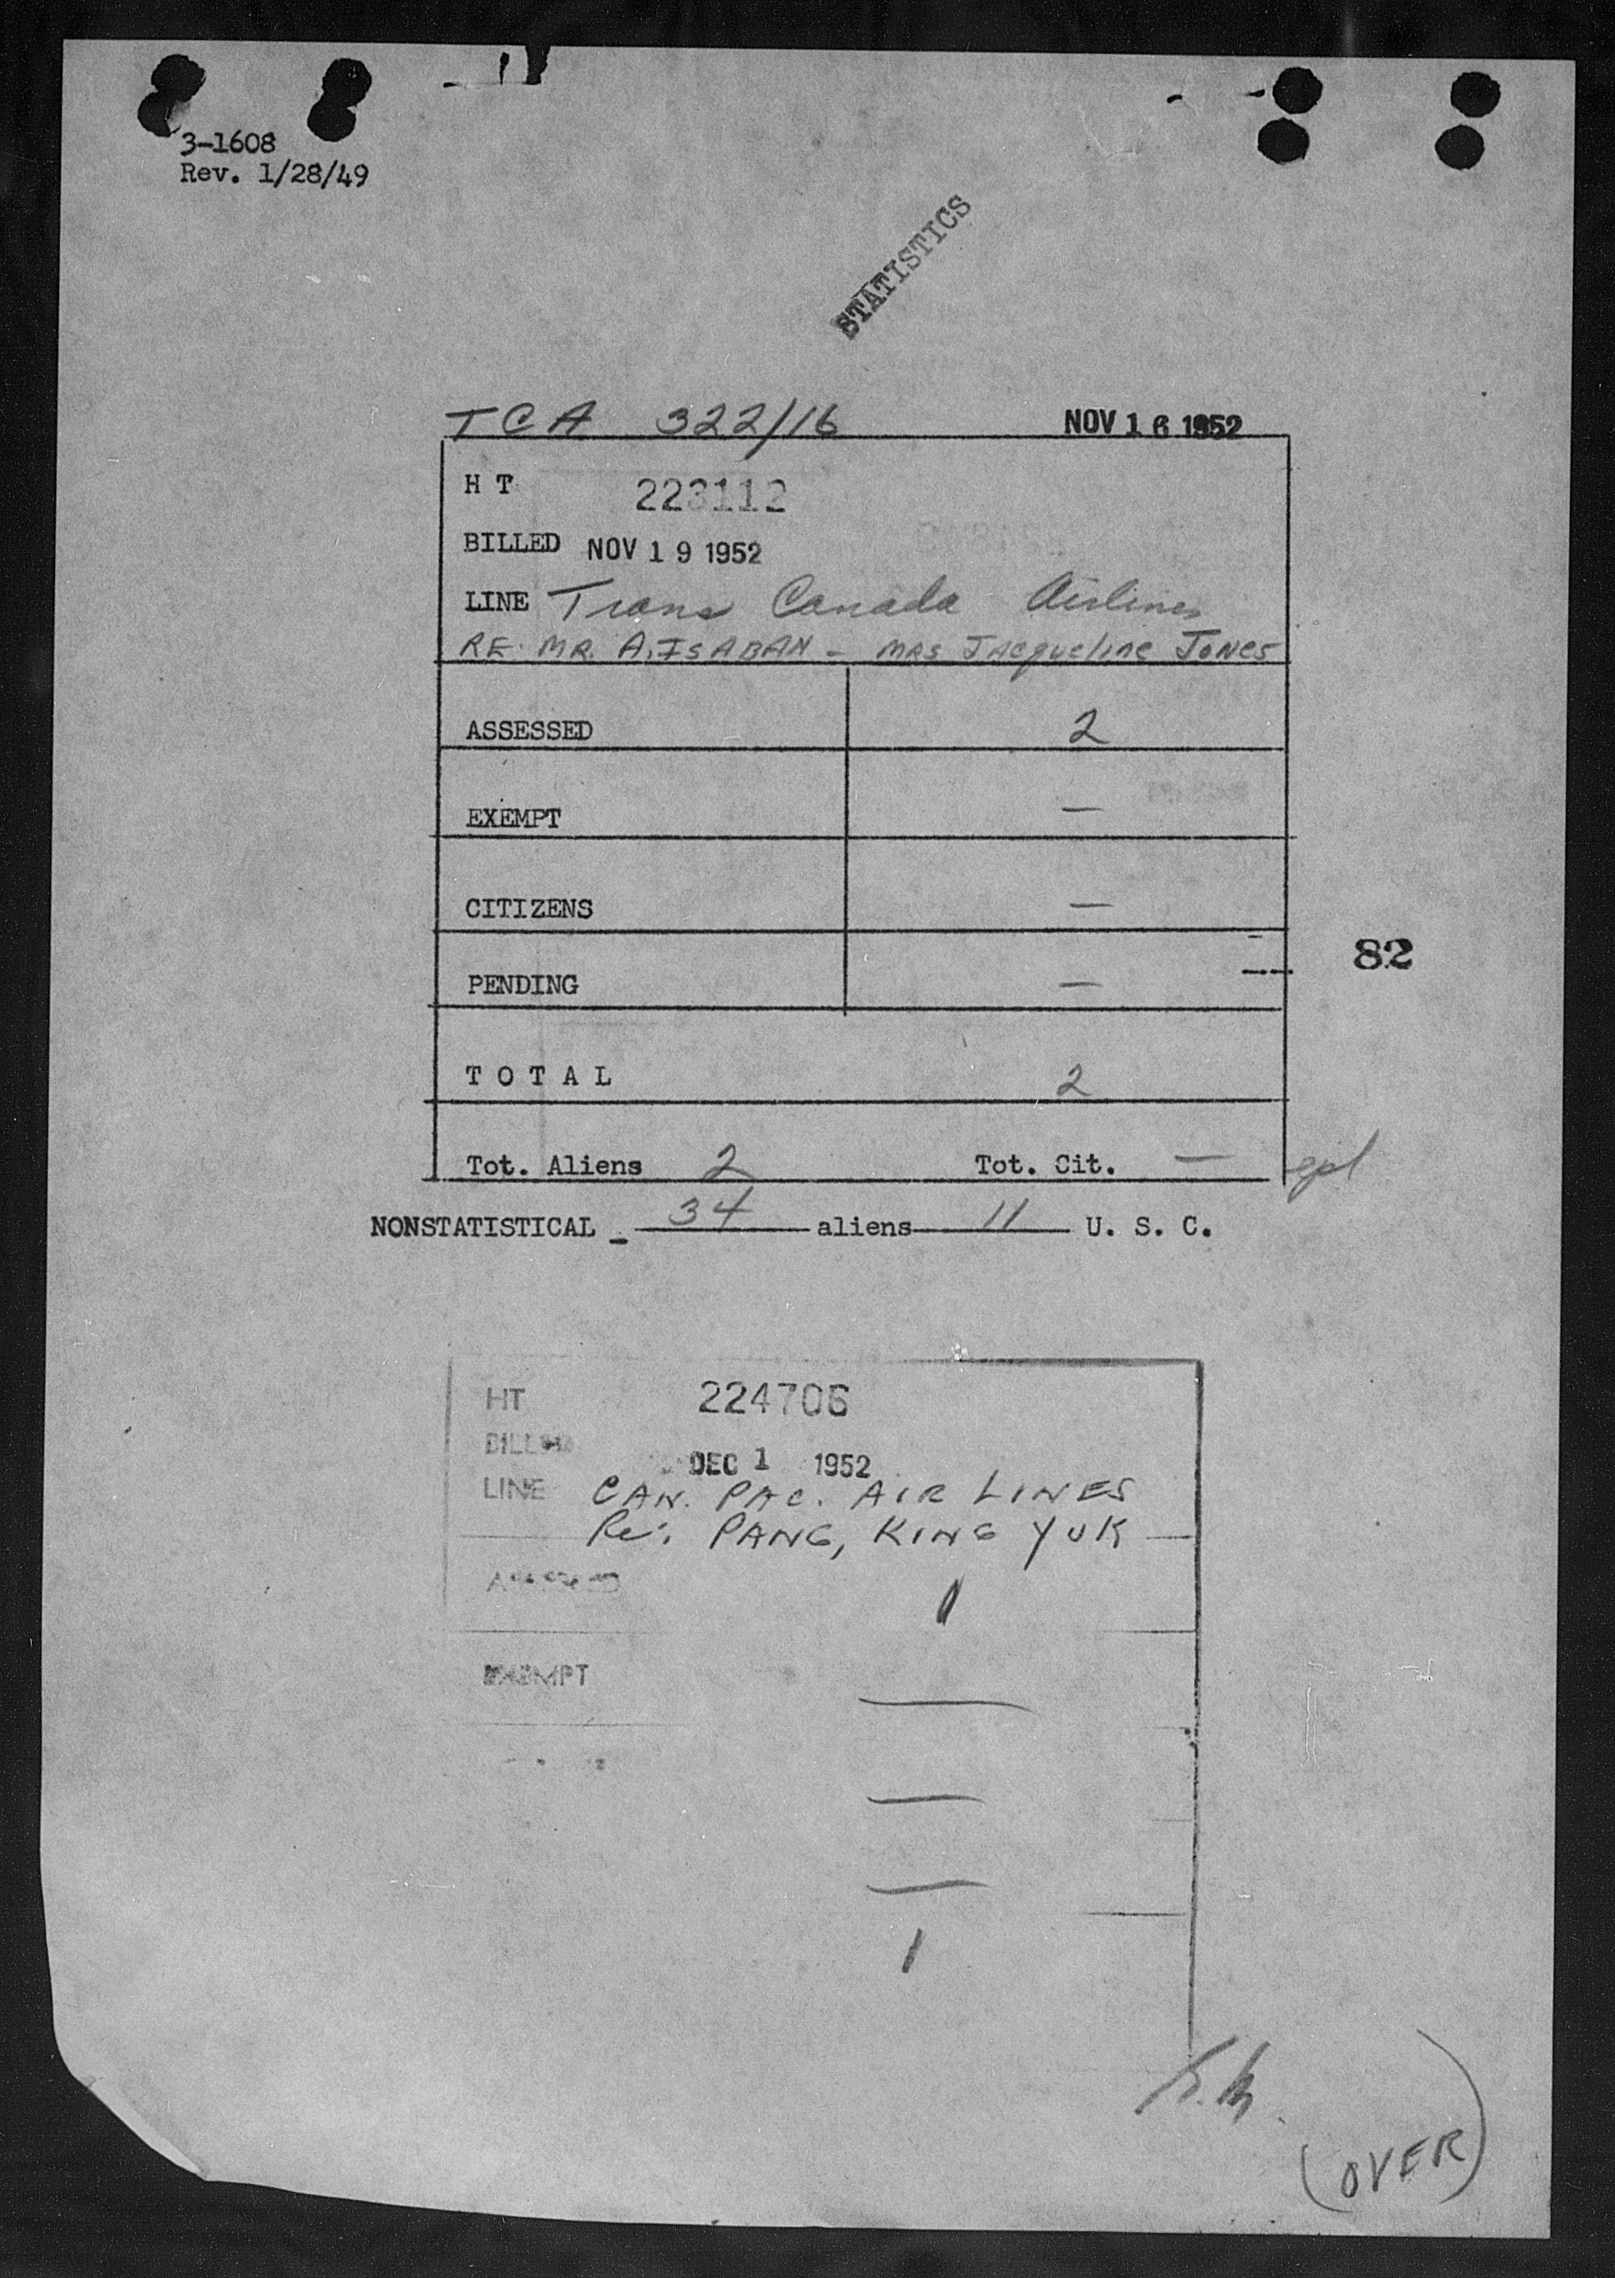 3-1608
Rev. 1/28/49
STATISTICS
TCA 322/16 NOV 16 1952
H T 223112
BILLED NOV 19 1952
LINE Trans Canada Airlines
RE: MR. A. ISABAN - MRS Jacqueline Jones
ASSESSED 2
EXEMPT —
CITIZENS —
82
PENDING —
T O T A L 2
Tot. Aliens 2 Tot. Cit. —
NONSTATISTICAL - 34 aliens 11 U. S. C.
HT 224706
BILLED DEC 1 1952
LINE CAN. PAC. AIR LINES
Re: PANG, KING YUK
ASSESSED 1
EXEMPT —
—
—
1
(OVER)